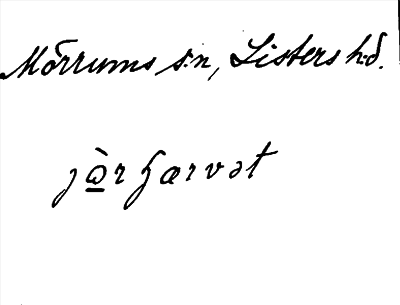 Mörrums s:n, Listers h:d.
jὼ̲rhærvət